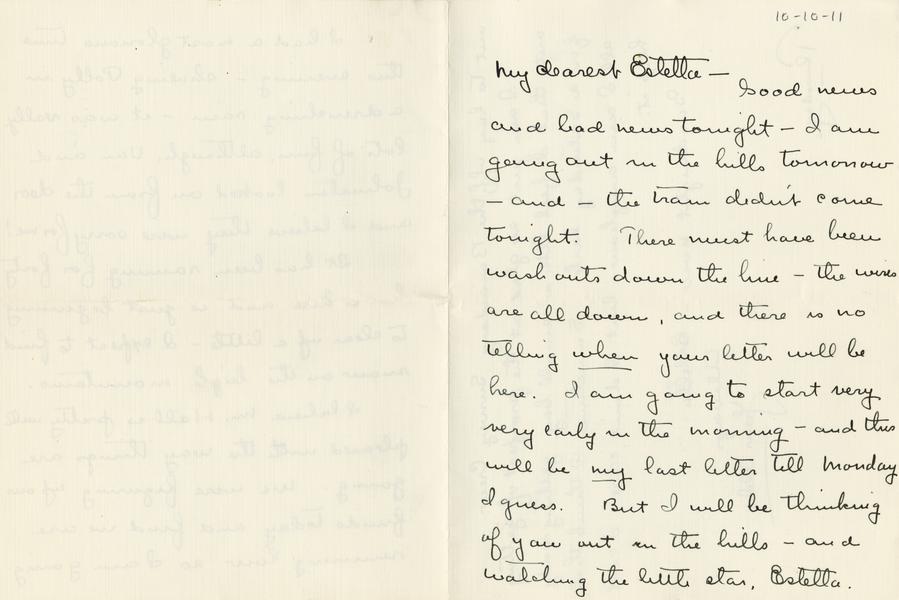 10-10-11
My dearest Estella —
Good news
and bad news tonight — I am
going out in the hills tomorrow
— and — the train didn't come
tonight. There must have been
wash outs down the line — the wires
are all down, and there is no
telling when your letter will be
here. I am going to start very
very early in the morning — and this
will be my last letter till Monday
I guess. But I will be thinking
of you out in the hills — and
watching the little star, Estella.